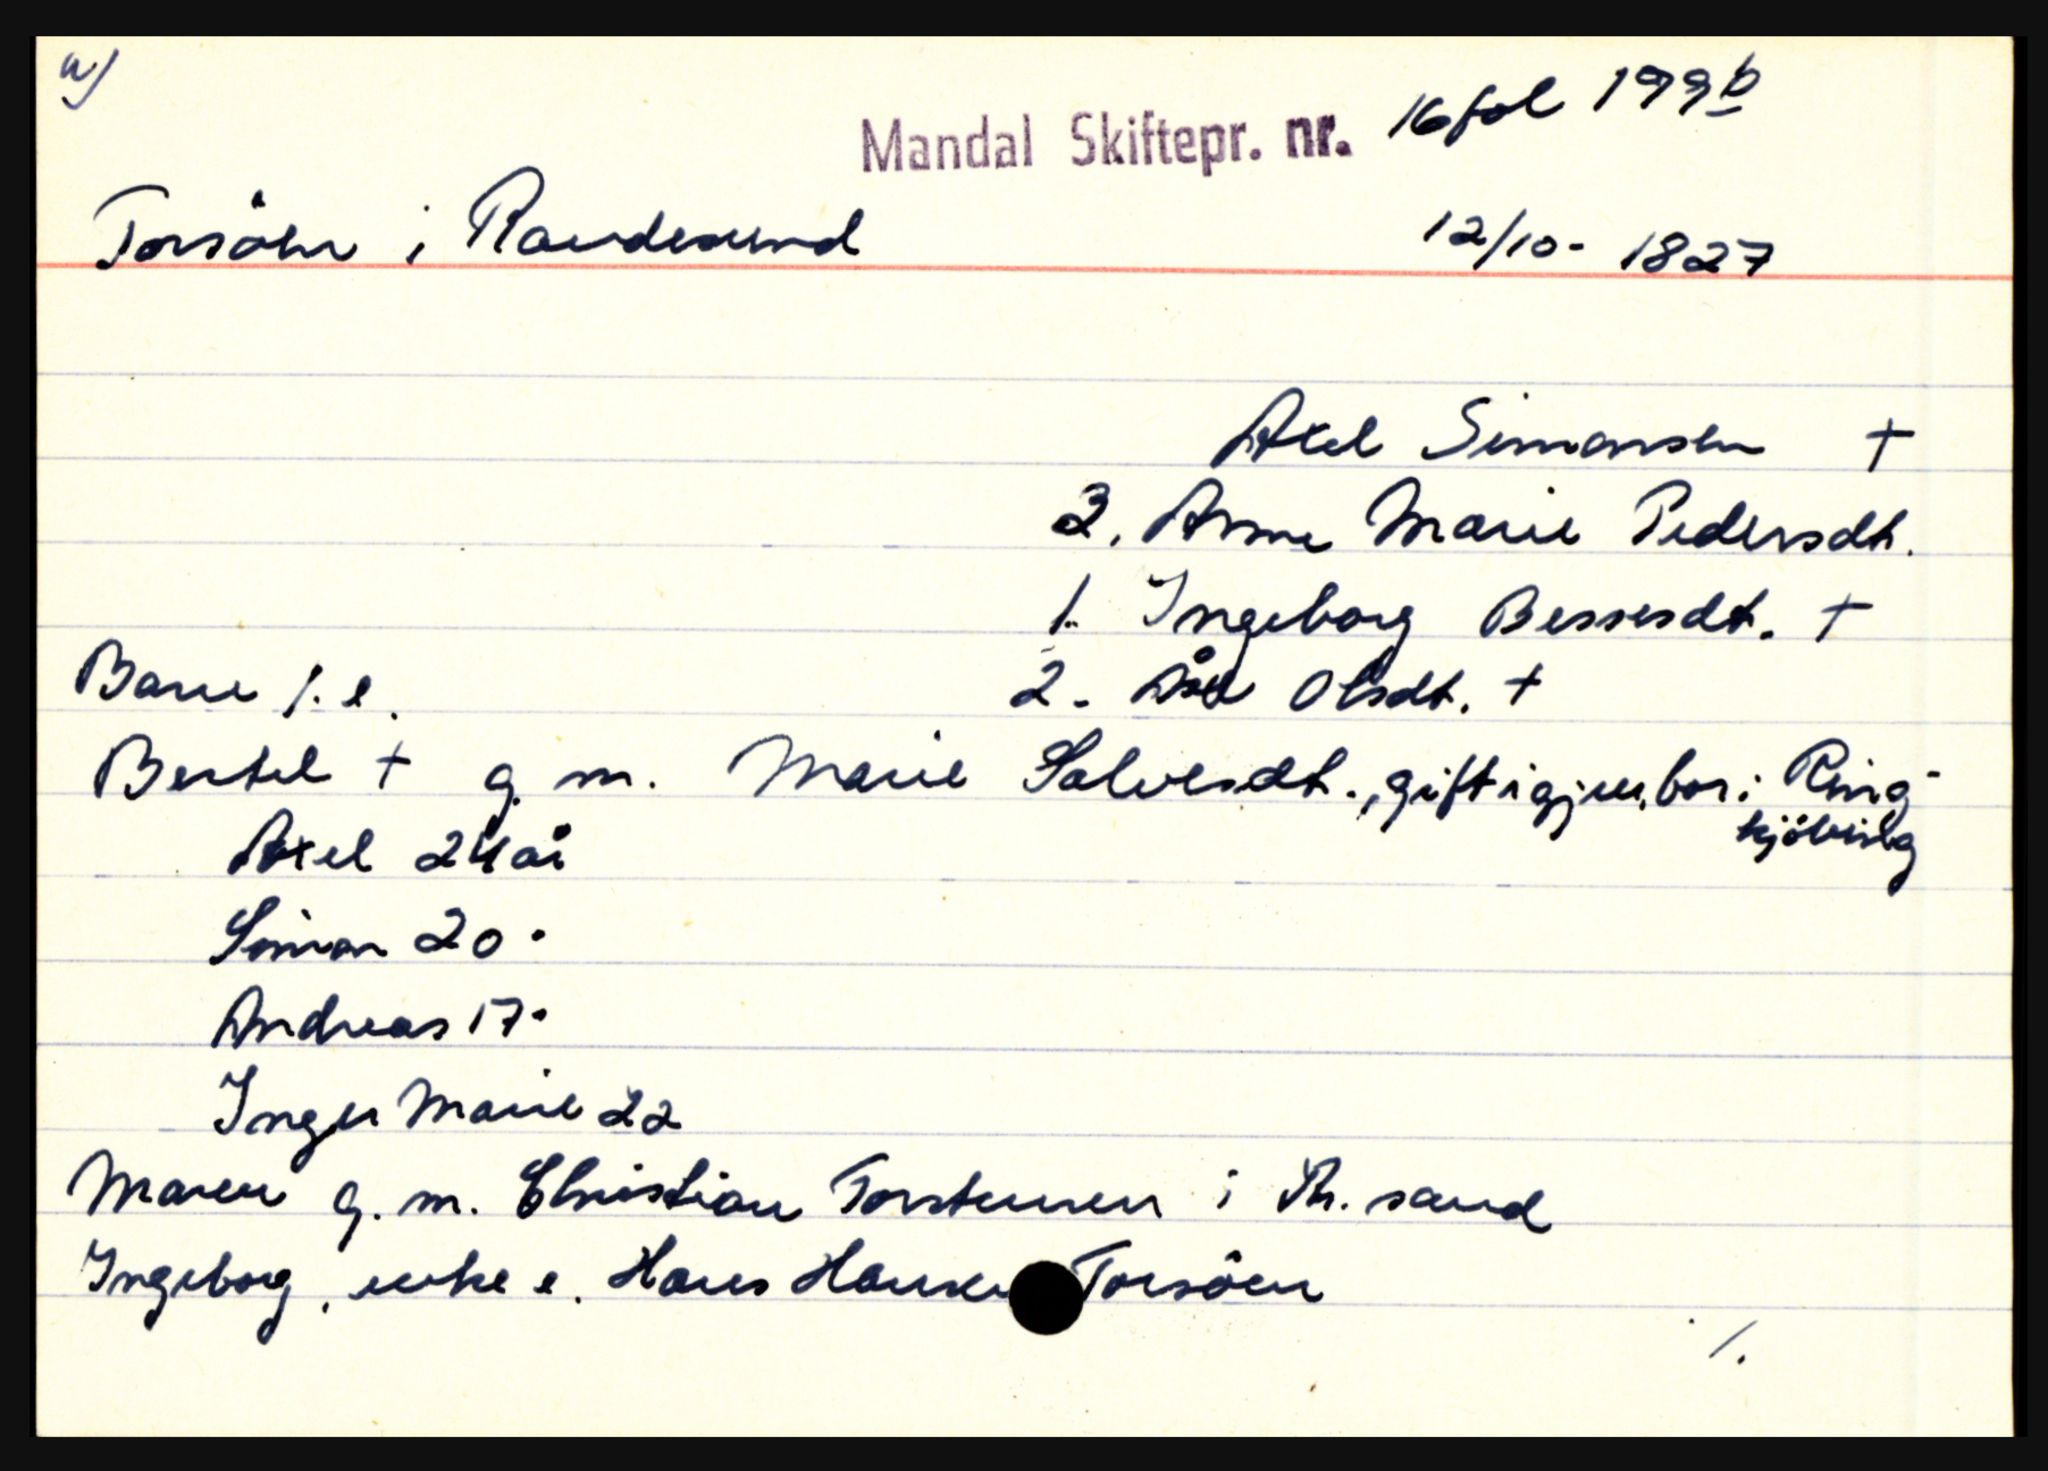 a)
Mandal Skiftepr. nr. 16 fol 199b
Torsöen i Randesund 12/10- 1827
Axel Simonsen +
3. Anne Marie Pedersdt.
1. Ingeborg Bessesdt. +
Barn 1. e. 2. Åse Olsdt. +
Bertel + g. m. Marie Salvesdt., gift igjen, bor i Ring-
kjöbing
Axel 24 år
Simon 20 "
Andreas 17 "
Inger Marie 22
Maren g. m. Christian Torstensen i Kr. sand
Ingeborg, enke e. Hans Hansen Torsöen
/.